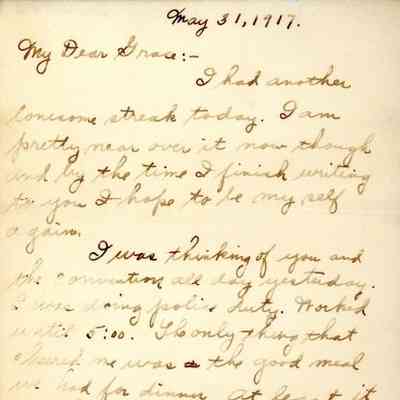 May 31, 1917.
My Dear Grace:-
I had another
lonesome streak today. I am
pretty near over it now though
and by the time I finish writing
to you I hope to be my self
again.
I was thinking of you and
the convention all day yesterday.
I was doing police duty. Worked
until 5:00. The only thing that
cheered me was the good meal
we had for dinner. At least it